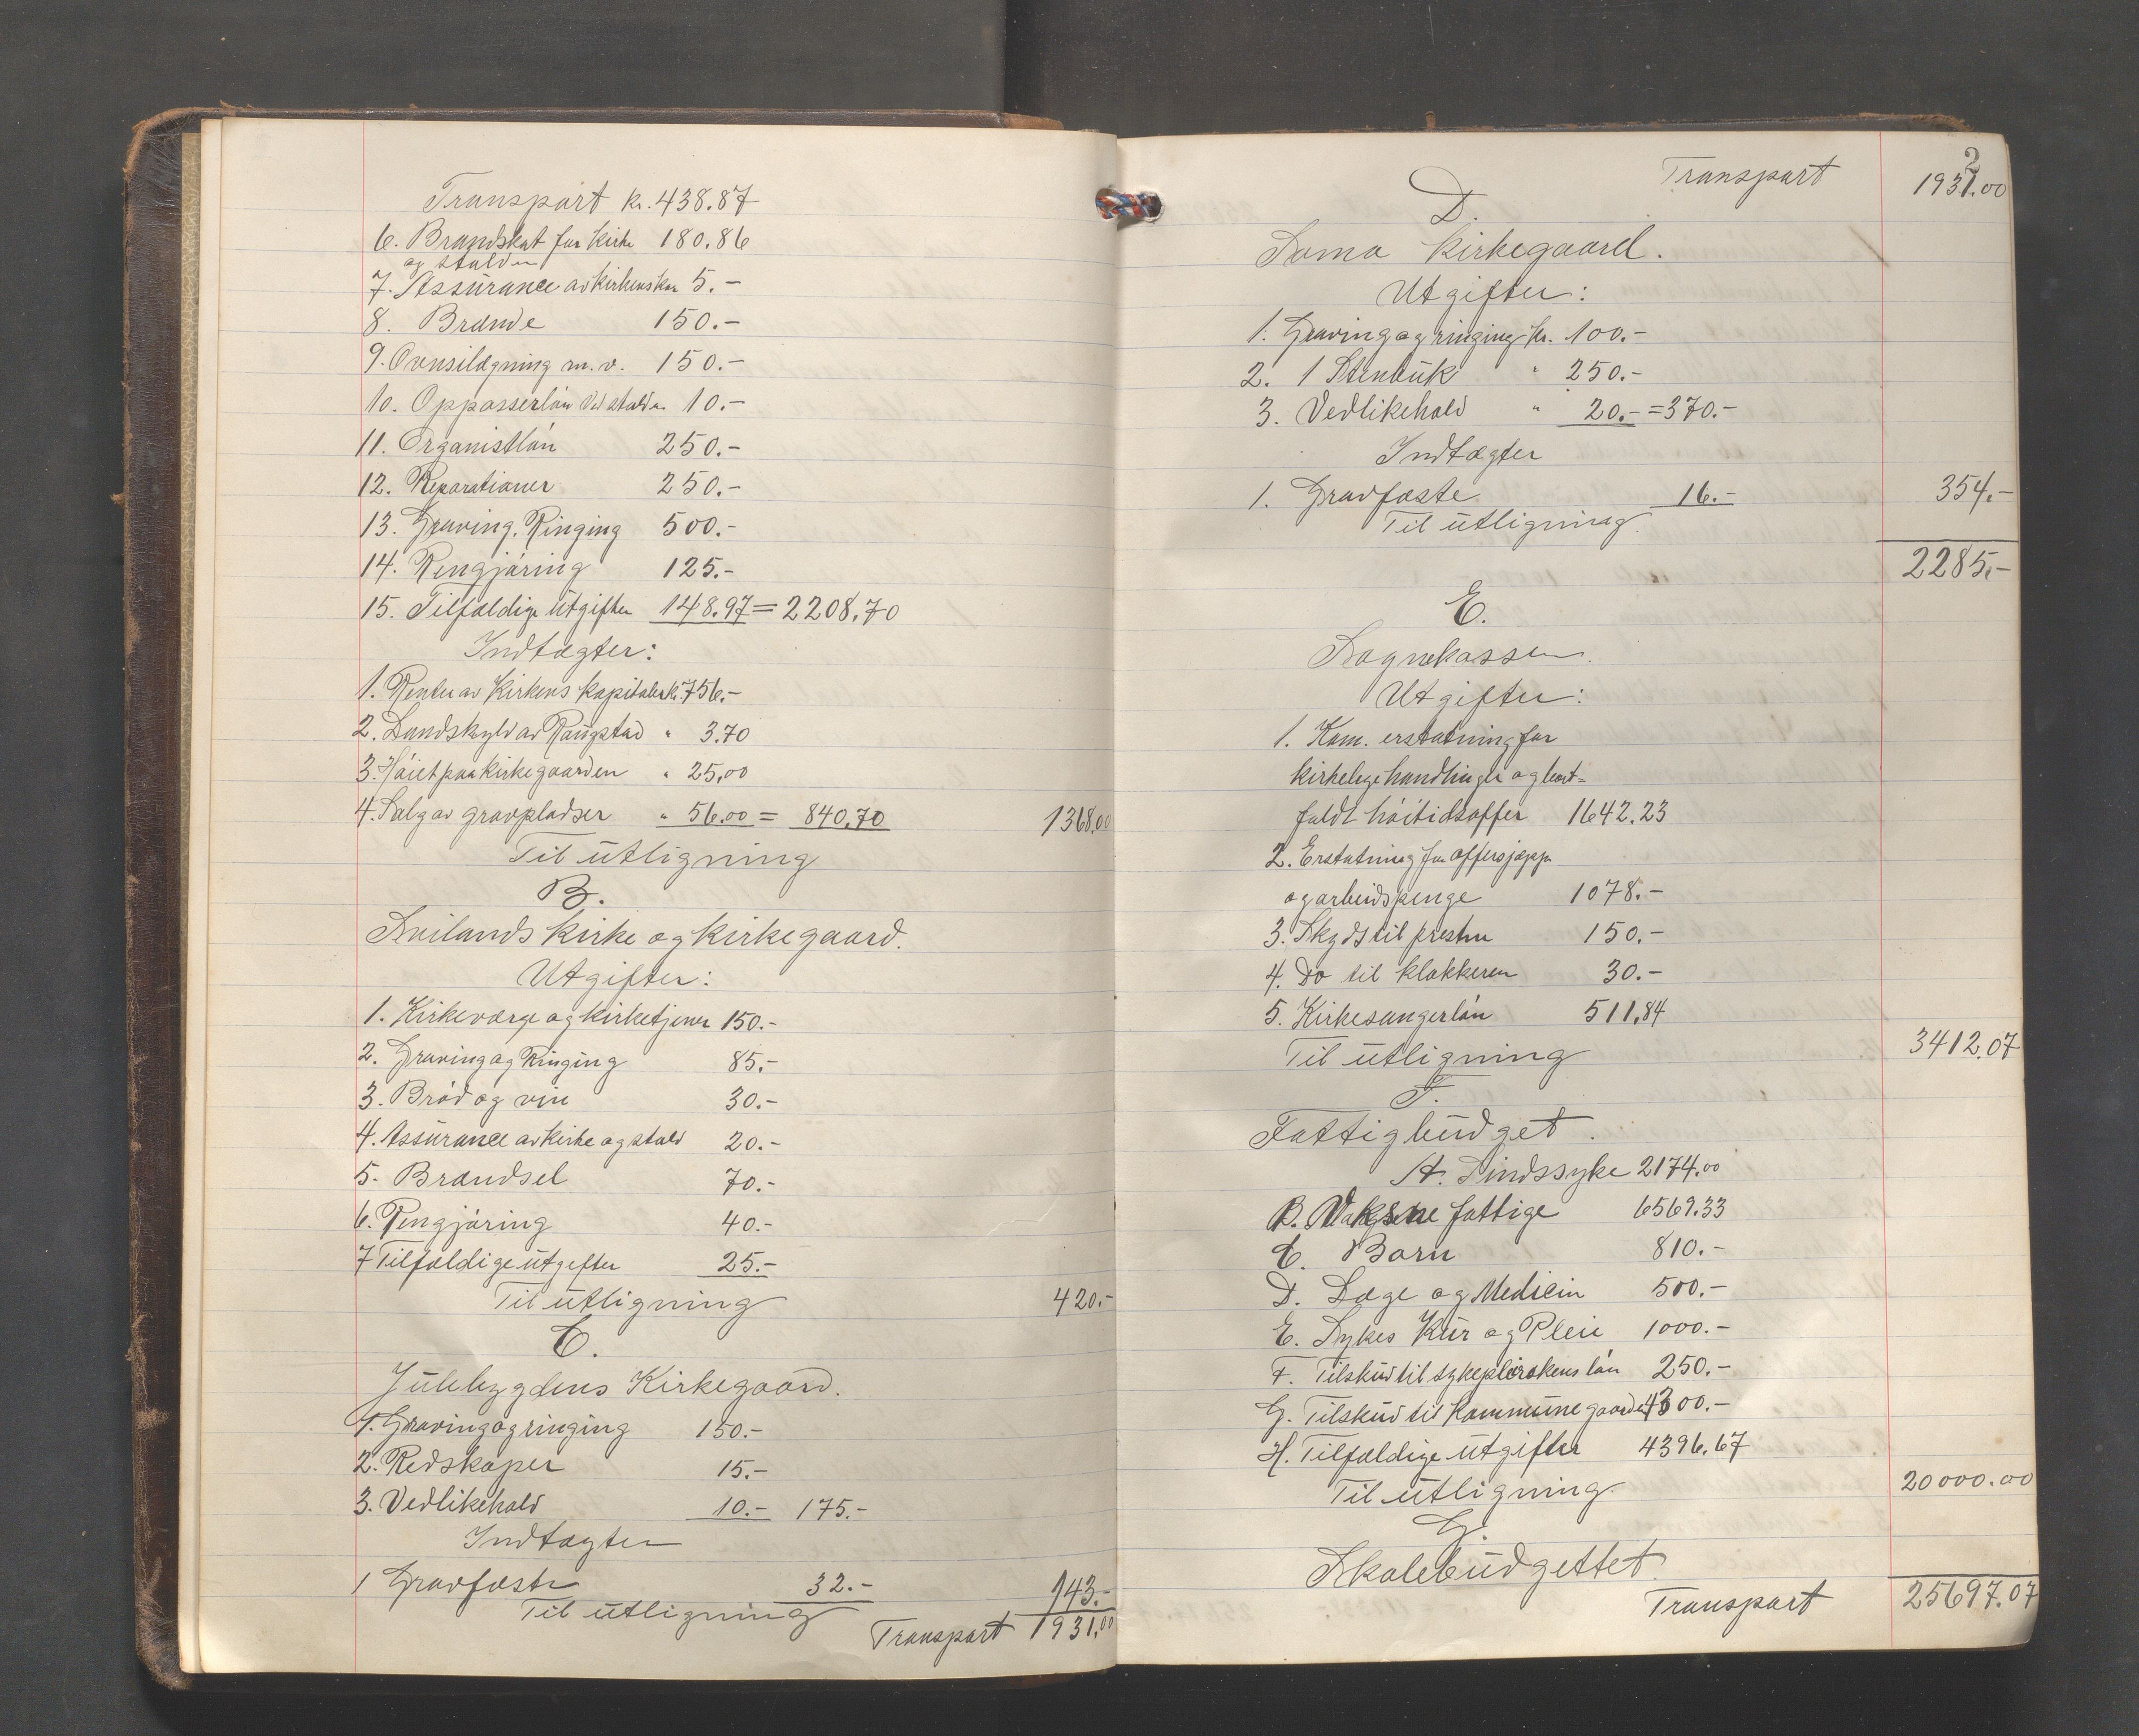 Transport kr. 438.87
6. Brandskat for kirke 180.86
og stalden
7. Assurance av kirkens kar 5.-
8. Brænde 150.-
9. Ovnsilægning m.v. 150.-
10. Oppasserløn ved stalden 10.-
11. Organistløn 250.-
12. Reparationer 250.-
13. Graving. Ringing 500.-
14. Rengjøring 125.-
15. Tilfældige utgifter 148.97 = 2208,70
Indtægter:
1. Renter av Kirkens kapitaler kr. 756.-
2. Landskyld av Raugstad " 3.70
3. Høiet paa kirkegaarden " 25,00
4. Salg av gravpladser " 56.00 = 840,70 1368,00
Til utligning
B.
Soilands kirke og kirkegaard.
Utgifter:
1. Kirkeværge og kirketjener 150.-
2. Graving og Ringing 85.-
3. Brød og vin 30.-
4. Assurance av kirke og stald 20.-
5. Brændsel 70.-
6. Rengjøring 40.-
7 Tilfældige utgifter 25.-
Til utligning 420.-
C.
Julebygdens Kirkegaard.
1. Graving og ringing 150.-
2. Redskaper 15.-
3. Vedlikehold 10.- 175.-
Indtægter
1 Gravfæste 32.- 143.-
Til utligning
Transport 1931,00
2
Transport 1931.00
D.
Soma kirkegaard.
Utgifter:
1. Graving og ringing kr. 100.-
2. 1 Stenbuk " 250.-
3. Vedlikehold " 20.- = 370.-
Indtægter
1. Gravfæste 16.- 354.-
Til utligning.
2285,-
E.
Sognekassen.
Utgifter:
1. Kom. erstatning for
kirkelige handlinger og bort-
faldt høitidsoffer 1642.23
2. Erstatning for
og arbeidspenge 1078.-
3. Skyds til presten 150.-
4. Do til klokkeren 30.-
5. Kirkesangerløn 511,84
Til utligning 3412.07
F.
Fattigbudget.
A. Sindssyke 2174.00
B. Voksne fattige 6569.33
C. Barn 810.-
D. Læge og Medicin 500.-
E. Sykes Kur og Pleie 1000.-
F. Tilskud til sykepleierskens løn 250.-
G. Tilskud til Kommunegaarden 4300.-
H. Tilfældige utgifter 4396.67
Til utligning. 20000.00
G.
Skolebudgettet.
Transport 25697.07